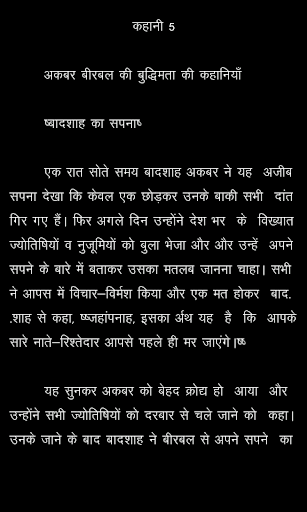 कहानी 5
अकबर बीरबल की बुद्धिमता की कहानियाँ
ष्बादशाह का सपनाष्
एक रात सोते समय बादशाह अकबर ने यह अजीब
सपना देखा कि केवल एक छोड़कर उनके बाकी सभी दांत
गिर गए हैं। फिर अगले दिन उन्होंने देश भर के विख्यात
ज्योतिषियों व नुजूमियों को बुला भेजा और और उन्हें अपने
सपने के बारे में बताकर उसका मतलब जानना चाहा। सभी
ने आपस में विचार–विर्मश किया और एक मत होकर बाद.
.शाह से कहा, ष्जहांपनाह, इसका र्अथ यह है कि आपके
सारे नाते–रिश्तेदार आपसे पहले ही मर जाएंगे।ष्
यह सुनकर अकबर को बेहद क्रोद्य हो आया और
उन्होंने सभी ज्योतिषियों को दरबार से चले जाने को कहा।
उनके जाने के बाद बादशाह ने बीरबल से अपने सपने का